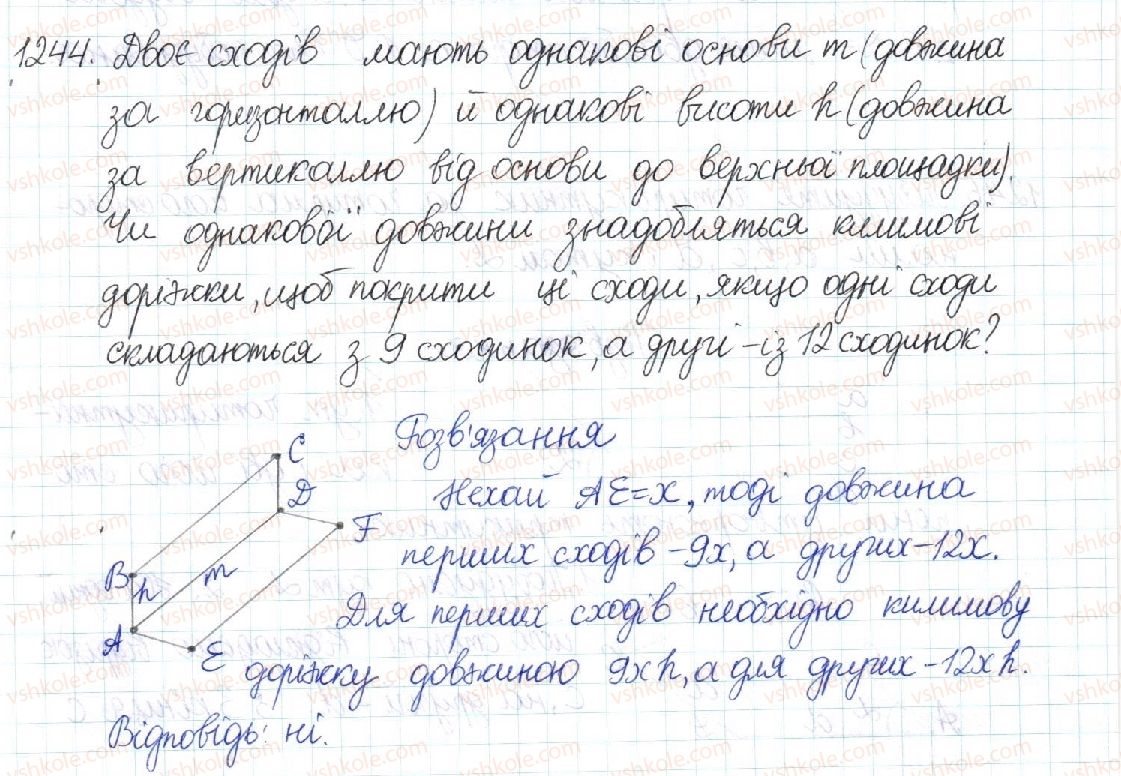 1244. Двоє сходів мають однакові основи m (довжина
за горизонталлю) й однакові висоти h (довжина
за вертикаллю від основи до верхньої площадки).
Чи однакової довжини знадобляться килимові
доріжки, щоб покрити ці сходи, якщо одні сходи
складаються з 9 сходинок, а другі – із 12 сходинок?
Розв'язання
Нехай AE=x, тоді довжина
перших сходів – 9x, а других – 12x.
Для перших сходів необхідно килимову
доріжку довжиною 9xh, а для других – 12xh.
Відповідь: ні.
C
D
F
B
h
m
A
E
vshkole.com